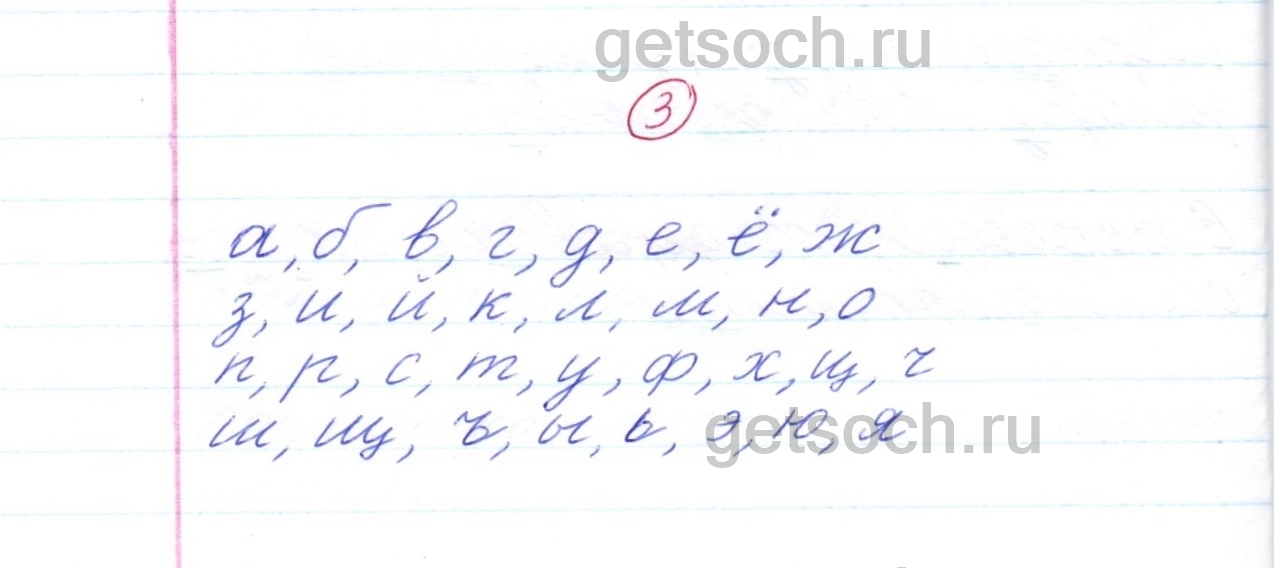 getsoch.ru
3
а, б, в, г, д, е, ё, ж
з, и, й, к, л, м, н, о
п, р, с, т, у, ф, х, щ, ч
ш, щ, ъ, ы, ь, э, ю, я
getsoch.ru